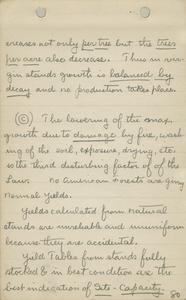 creases not only per tree but the trees
per acre also decrease. Thus in vir-
gin stands growth is balanced by
decay and no production takes place.
(C) The lowering of the max.
growth due to damage by fire, wash-
ing of the soil, exposure, drying, etc.
is the third disturbing factor of of the
Law. No American forests are giving
Normal Yields.
Yields calculated from natural
stands are unreliable and ununiform
because they are accidental.
Yield Tables from stands fully
stocked & in best condition are the
best indication of Site-Capacity.
80